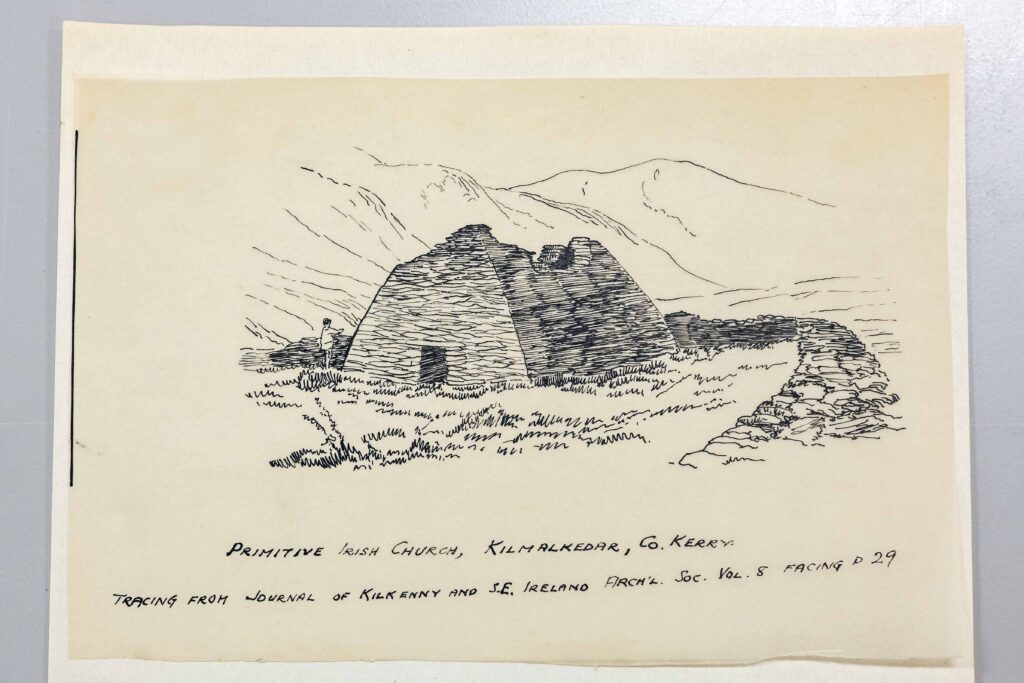 PRIMITIVE IRISH CHURCH, KILMALKEDAR, CO. KERRY.
TRACING FROM JOURNAL OF KILKENNY AND S.E. IRELAND ARCH'L. SOC. VOL. 8 FACING P 29